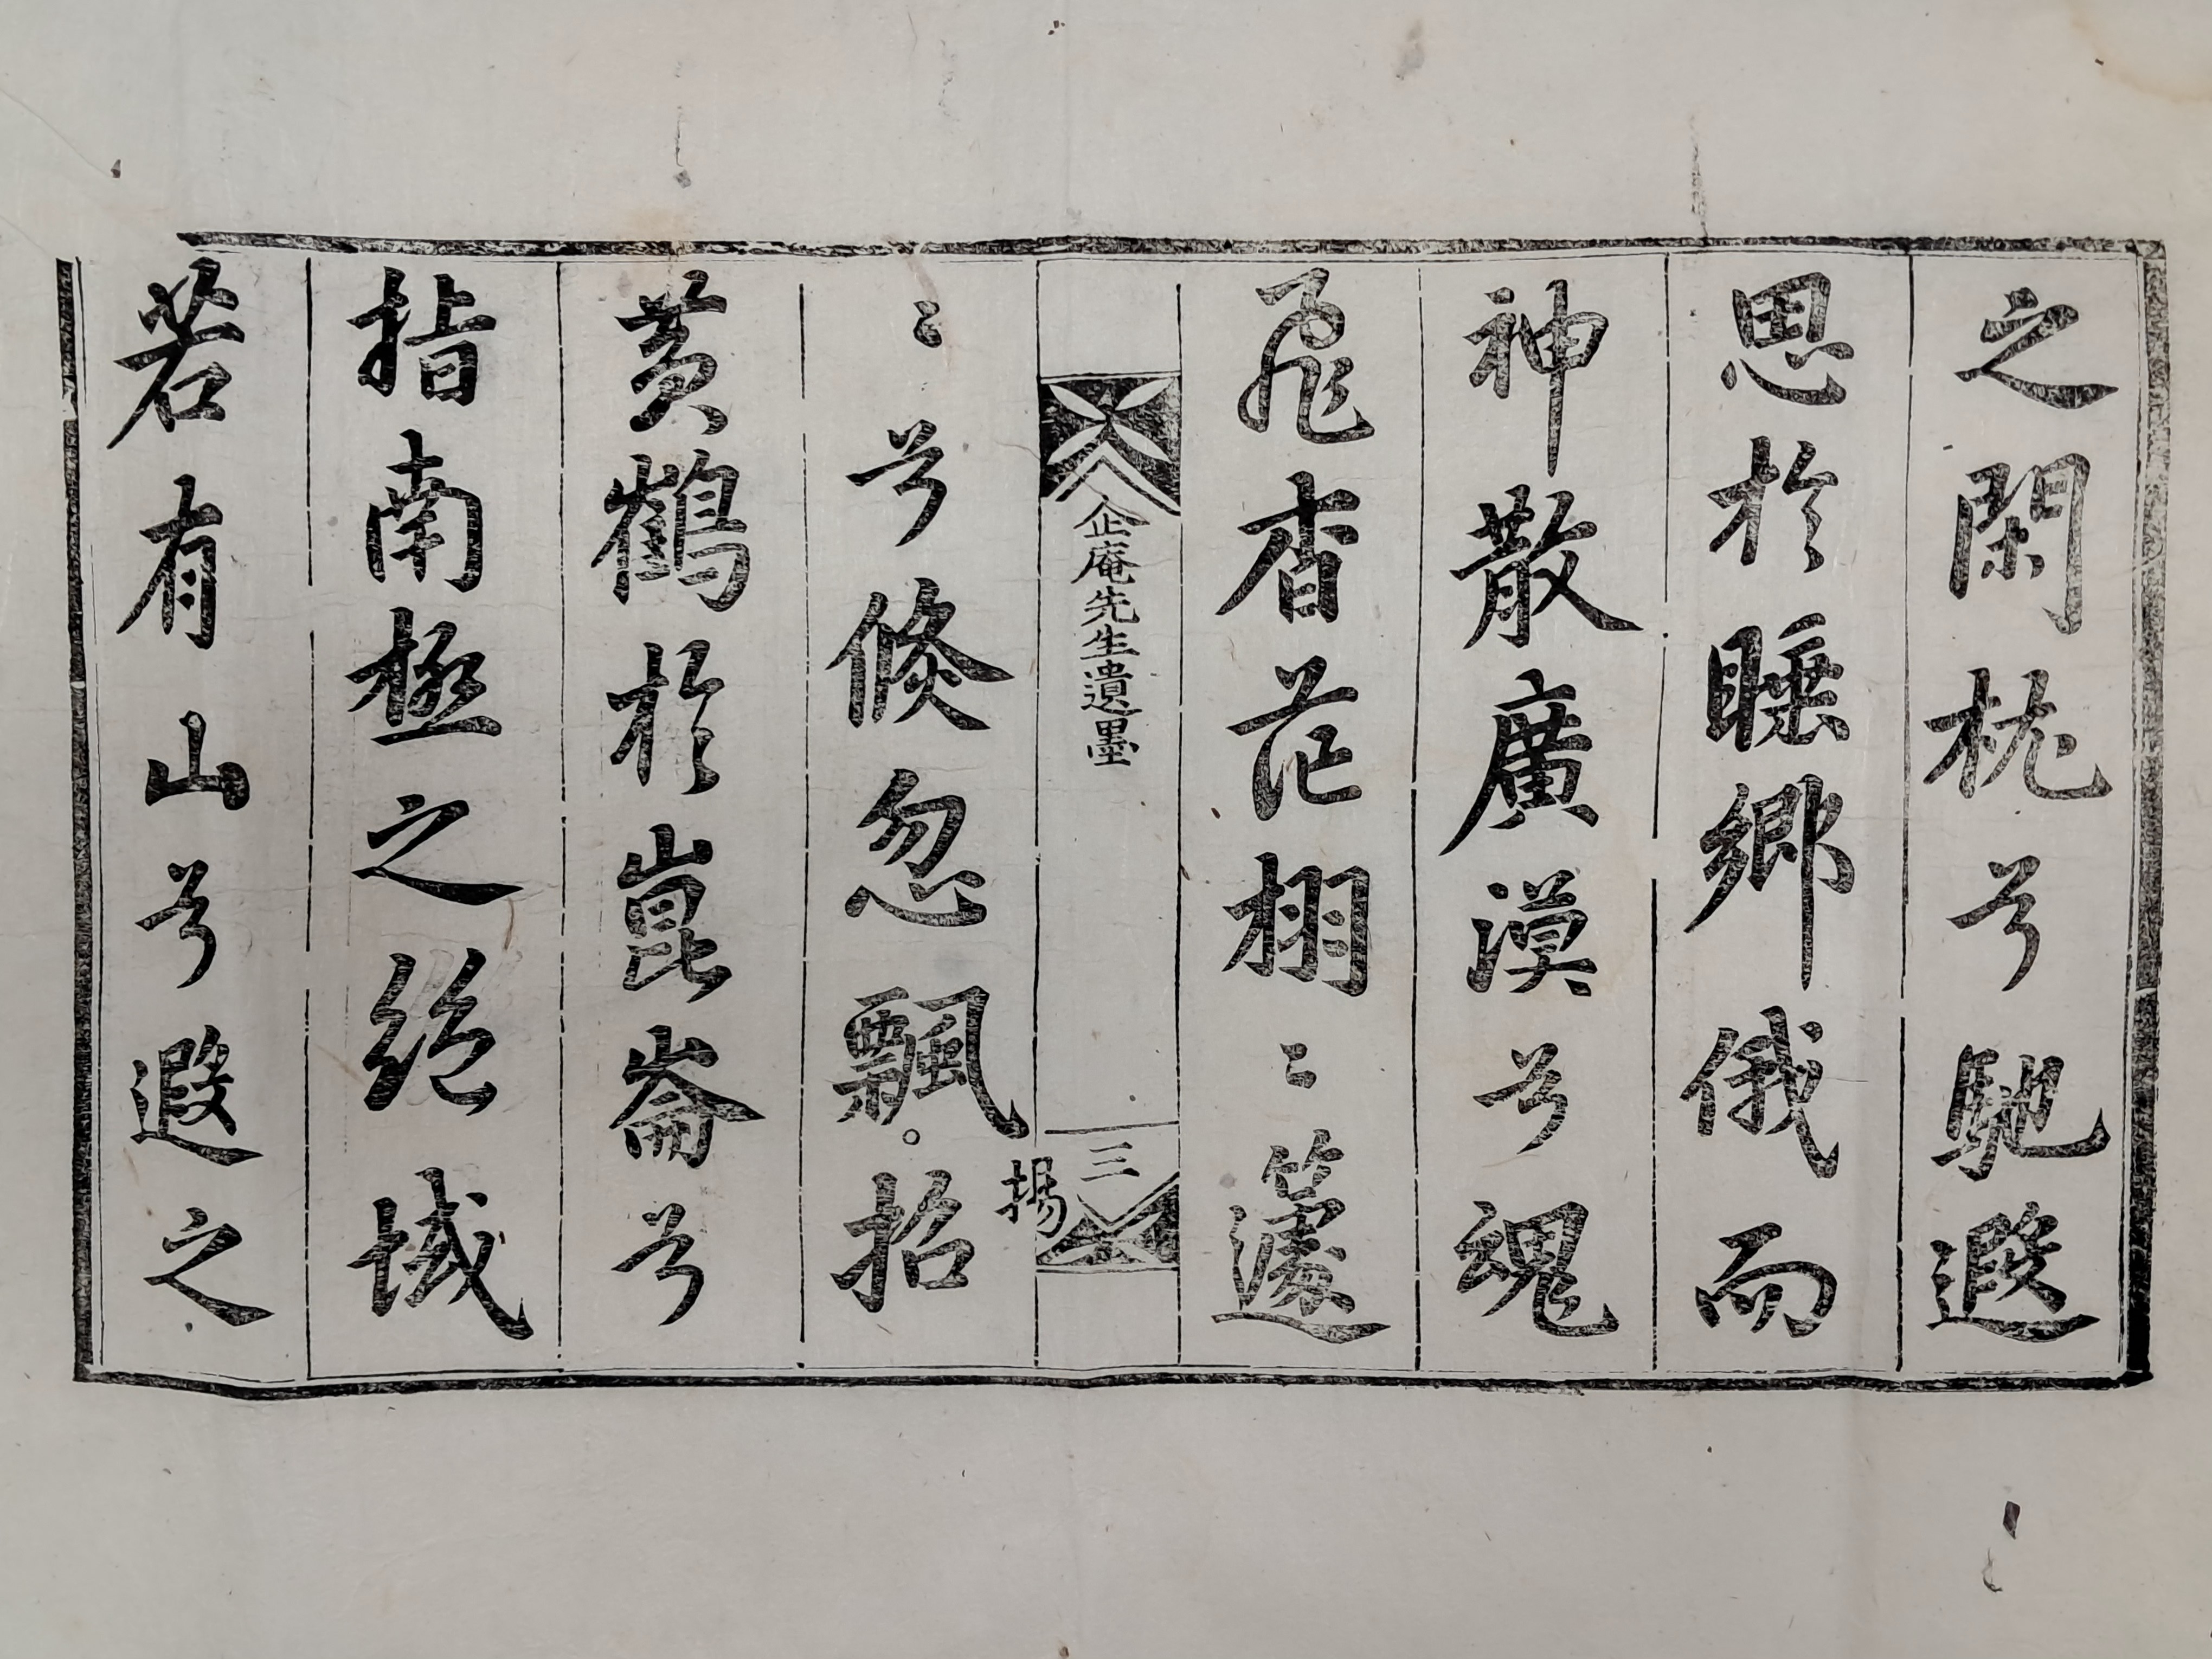 之閑枕兮馳遐
思於睡鄉俄而
神散廣漠兮魂
飛杳茫栩〻籧
企庵先生遺墨
三
〻兮倏忽飄招
揚
黃鶴於崑崙兮
指南極之絕域
若有山兮遐之